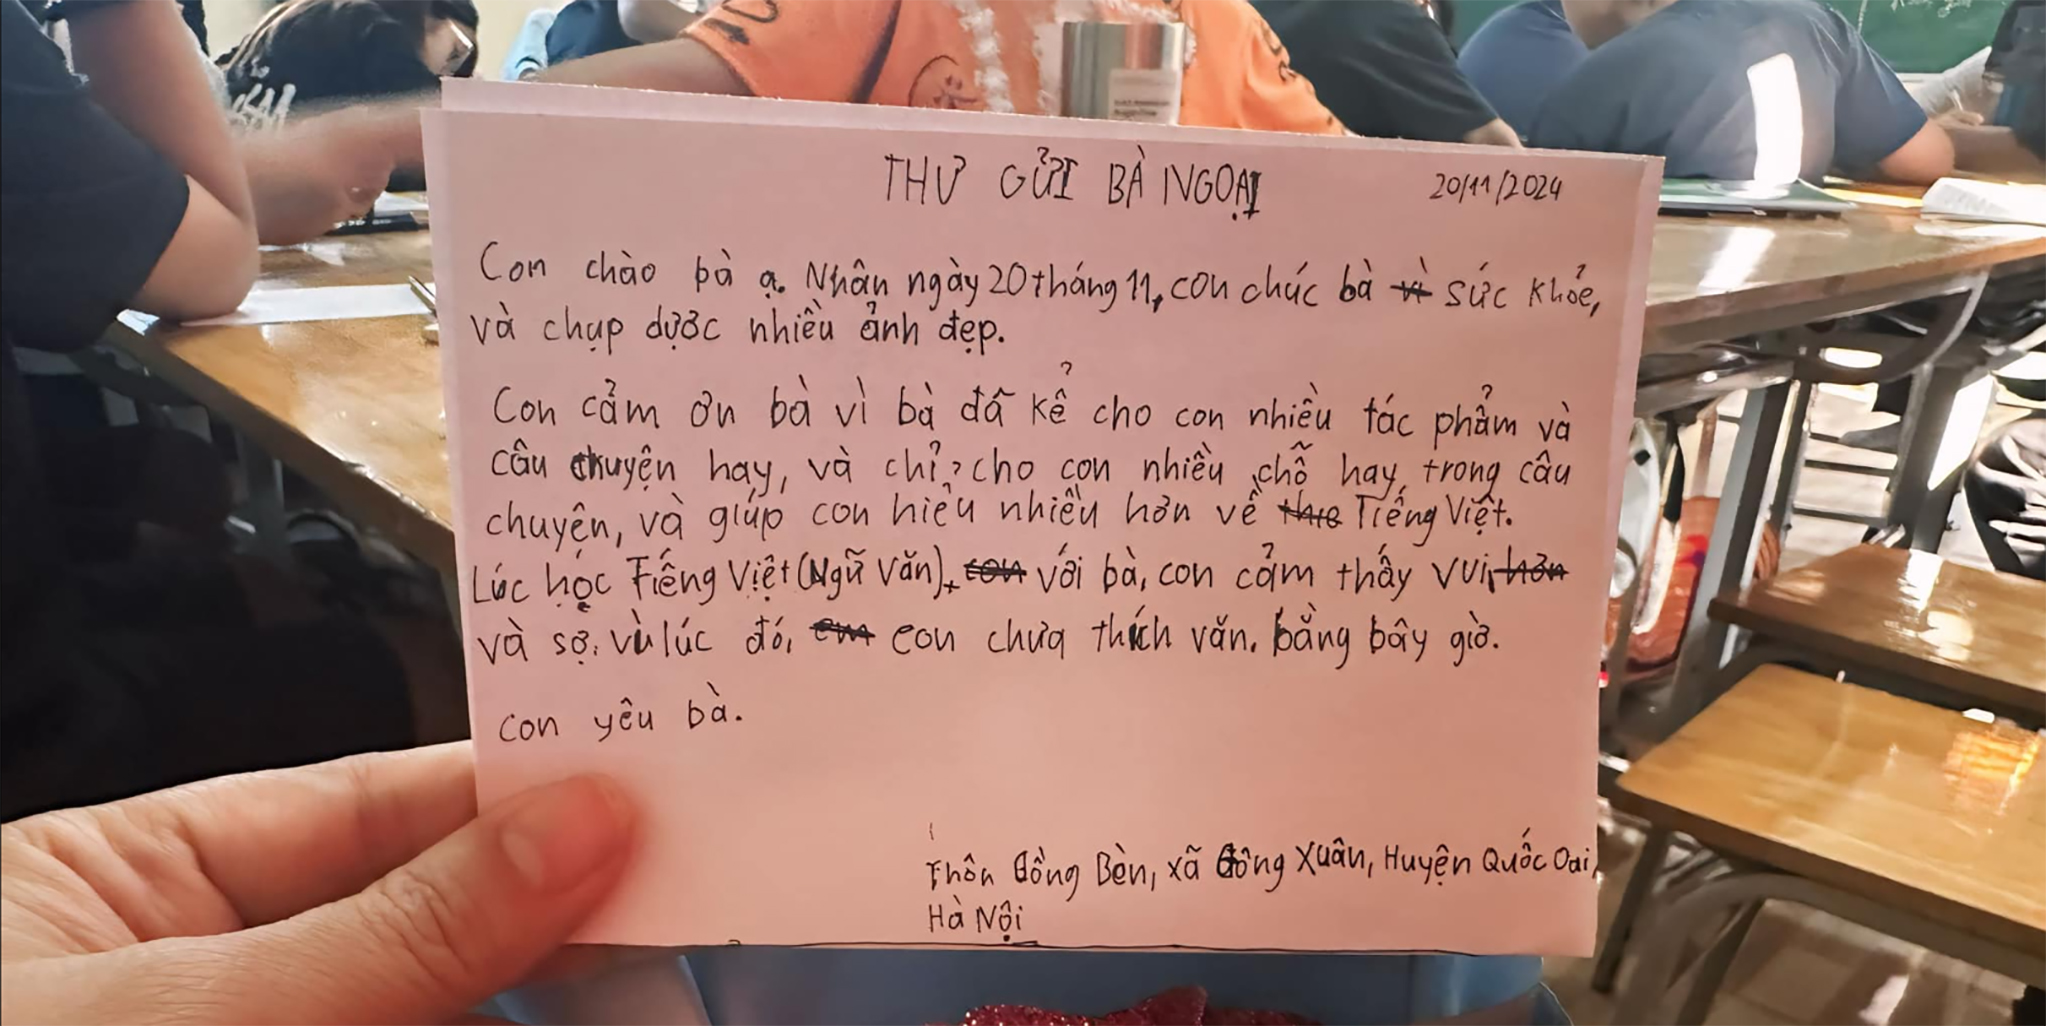 THƯ GỬI BÀ NGOẠI
20/11/2024
Con chào bà ạ. Nhân ngày 20 tháng 11, con chúc bà vì sức khỏe,
và chụp được nhiều ảnh đẹp.
Con cảm ơn bà vì bà đã kể cho con nhiều tác phẩm và
câu chuyện hay, và chỉ cho con nhiều chỗ hay, trong câu
chuyện, và giúp con hiểu nhiều hơn về Tiếng Việt.
Lúc học Tiếng Việt (Ngữ Văn), con với bà, con cảm thấy vui, hơn
và sợ, vì lúc đó, em con chưa thích văn, bằng bây giờ.
con yêu bà.
Thôn Đồng Bèn, xã Đông Xuân, Huyện Quốc Oai,
Hà Nội